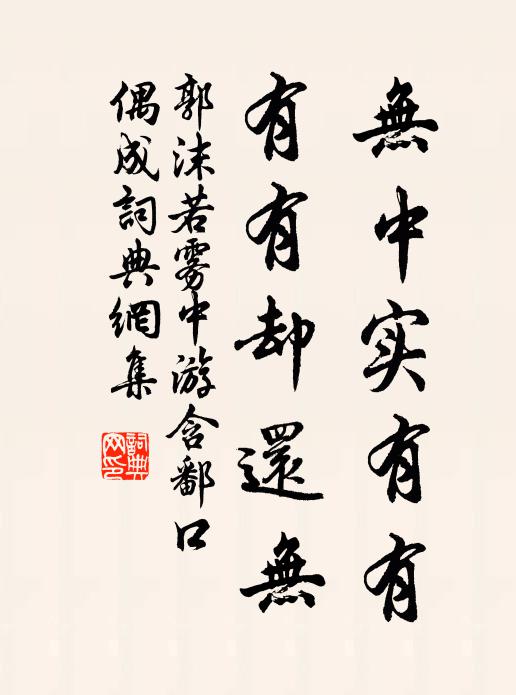 無中实有有
有有却還無
郭沫若雾中游含鄱口
偶成詞典網集
詞典网印